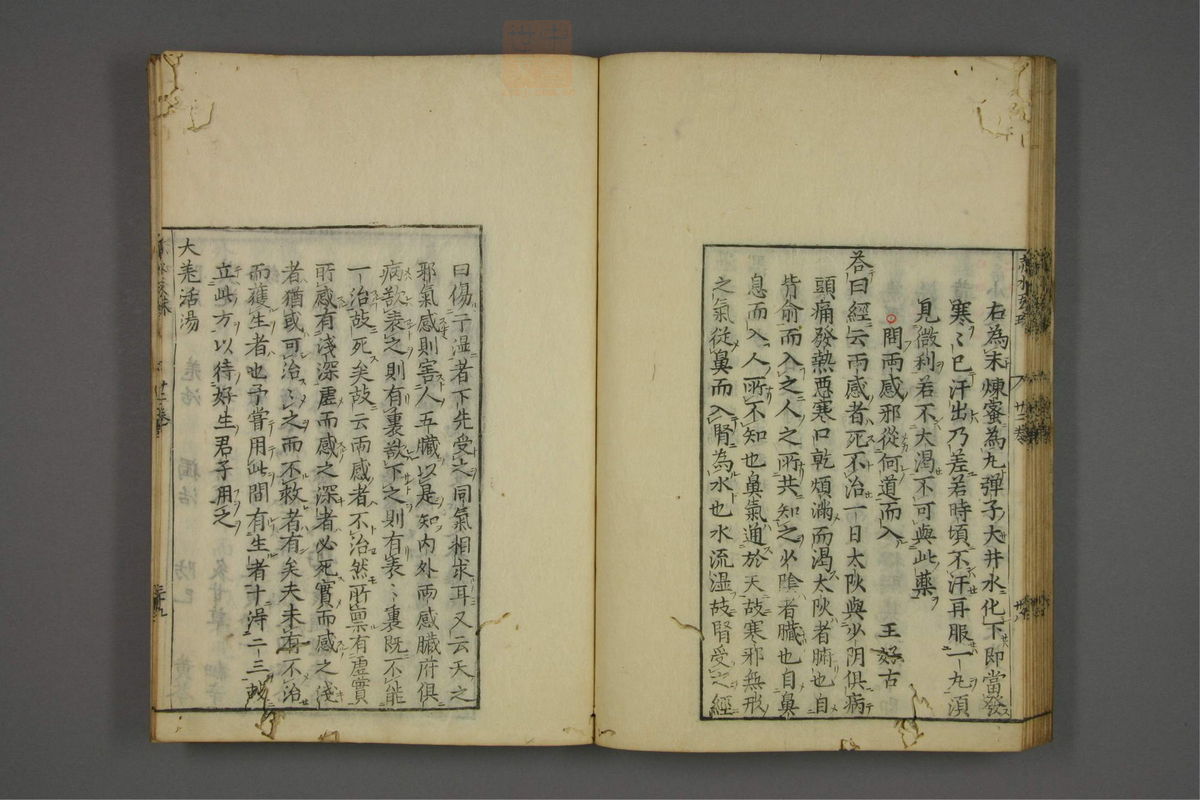 右為末煉蜜為丸弾子大井水化下即當發
寒〻已汗出乃差若時頃不汗再服一丸湏
見微利若不大渴不可與此藥
問兩感邪從何道而入 王好古
荅曰經云兩感者死不治一日太陽與少阴俱病
頭痛發熱悪寒口乾煩滿而渴太陽者腑也自
背俞而入之人之所共知之少陰者臓也自鼻
息而入人所不知也鼻氣通於天故寒邪無形
之氣從鼻而入腎為水也水流湿故腎受之經
曰傷于湿者下先受之同氣相求耳又云天之
邪氣感則害人五臓以是知内外兩感臓府俱
病欲表之則有裏欲下之則有表〻裏既不能
一治故死矣故云兩感者不治然所禀有虚實
所感有淺深虚而感之深者必死實而感之淺
者猶或可治〻之而不救者有矣夫未有不治
而獲生者也予嘗用此間有生者十得二三故
立此方以待好生君子用之
大羗活湯
羗活 獨活 防已